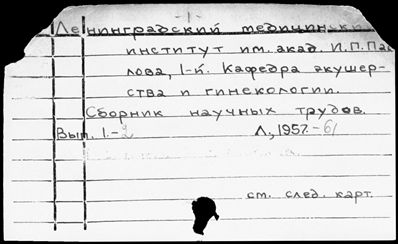 Ленинградский медицинский
институт им. акад. И.П.Пав
лова, 1-й. Кафедра акушер-
ства и гинекологии.
Сборник научных трудов.
Вып. 1.-2 Л., 1957.-61
см. след. карт.